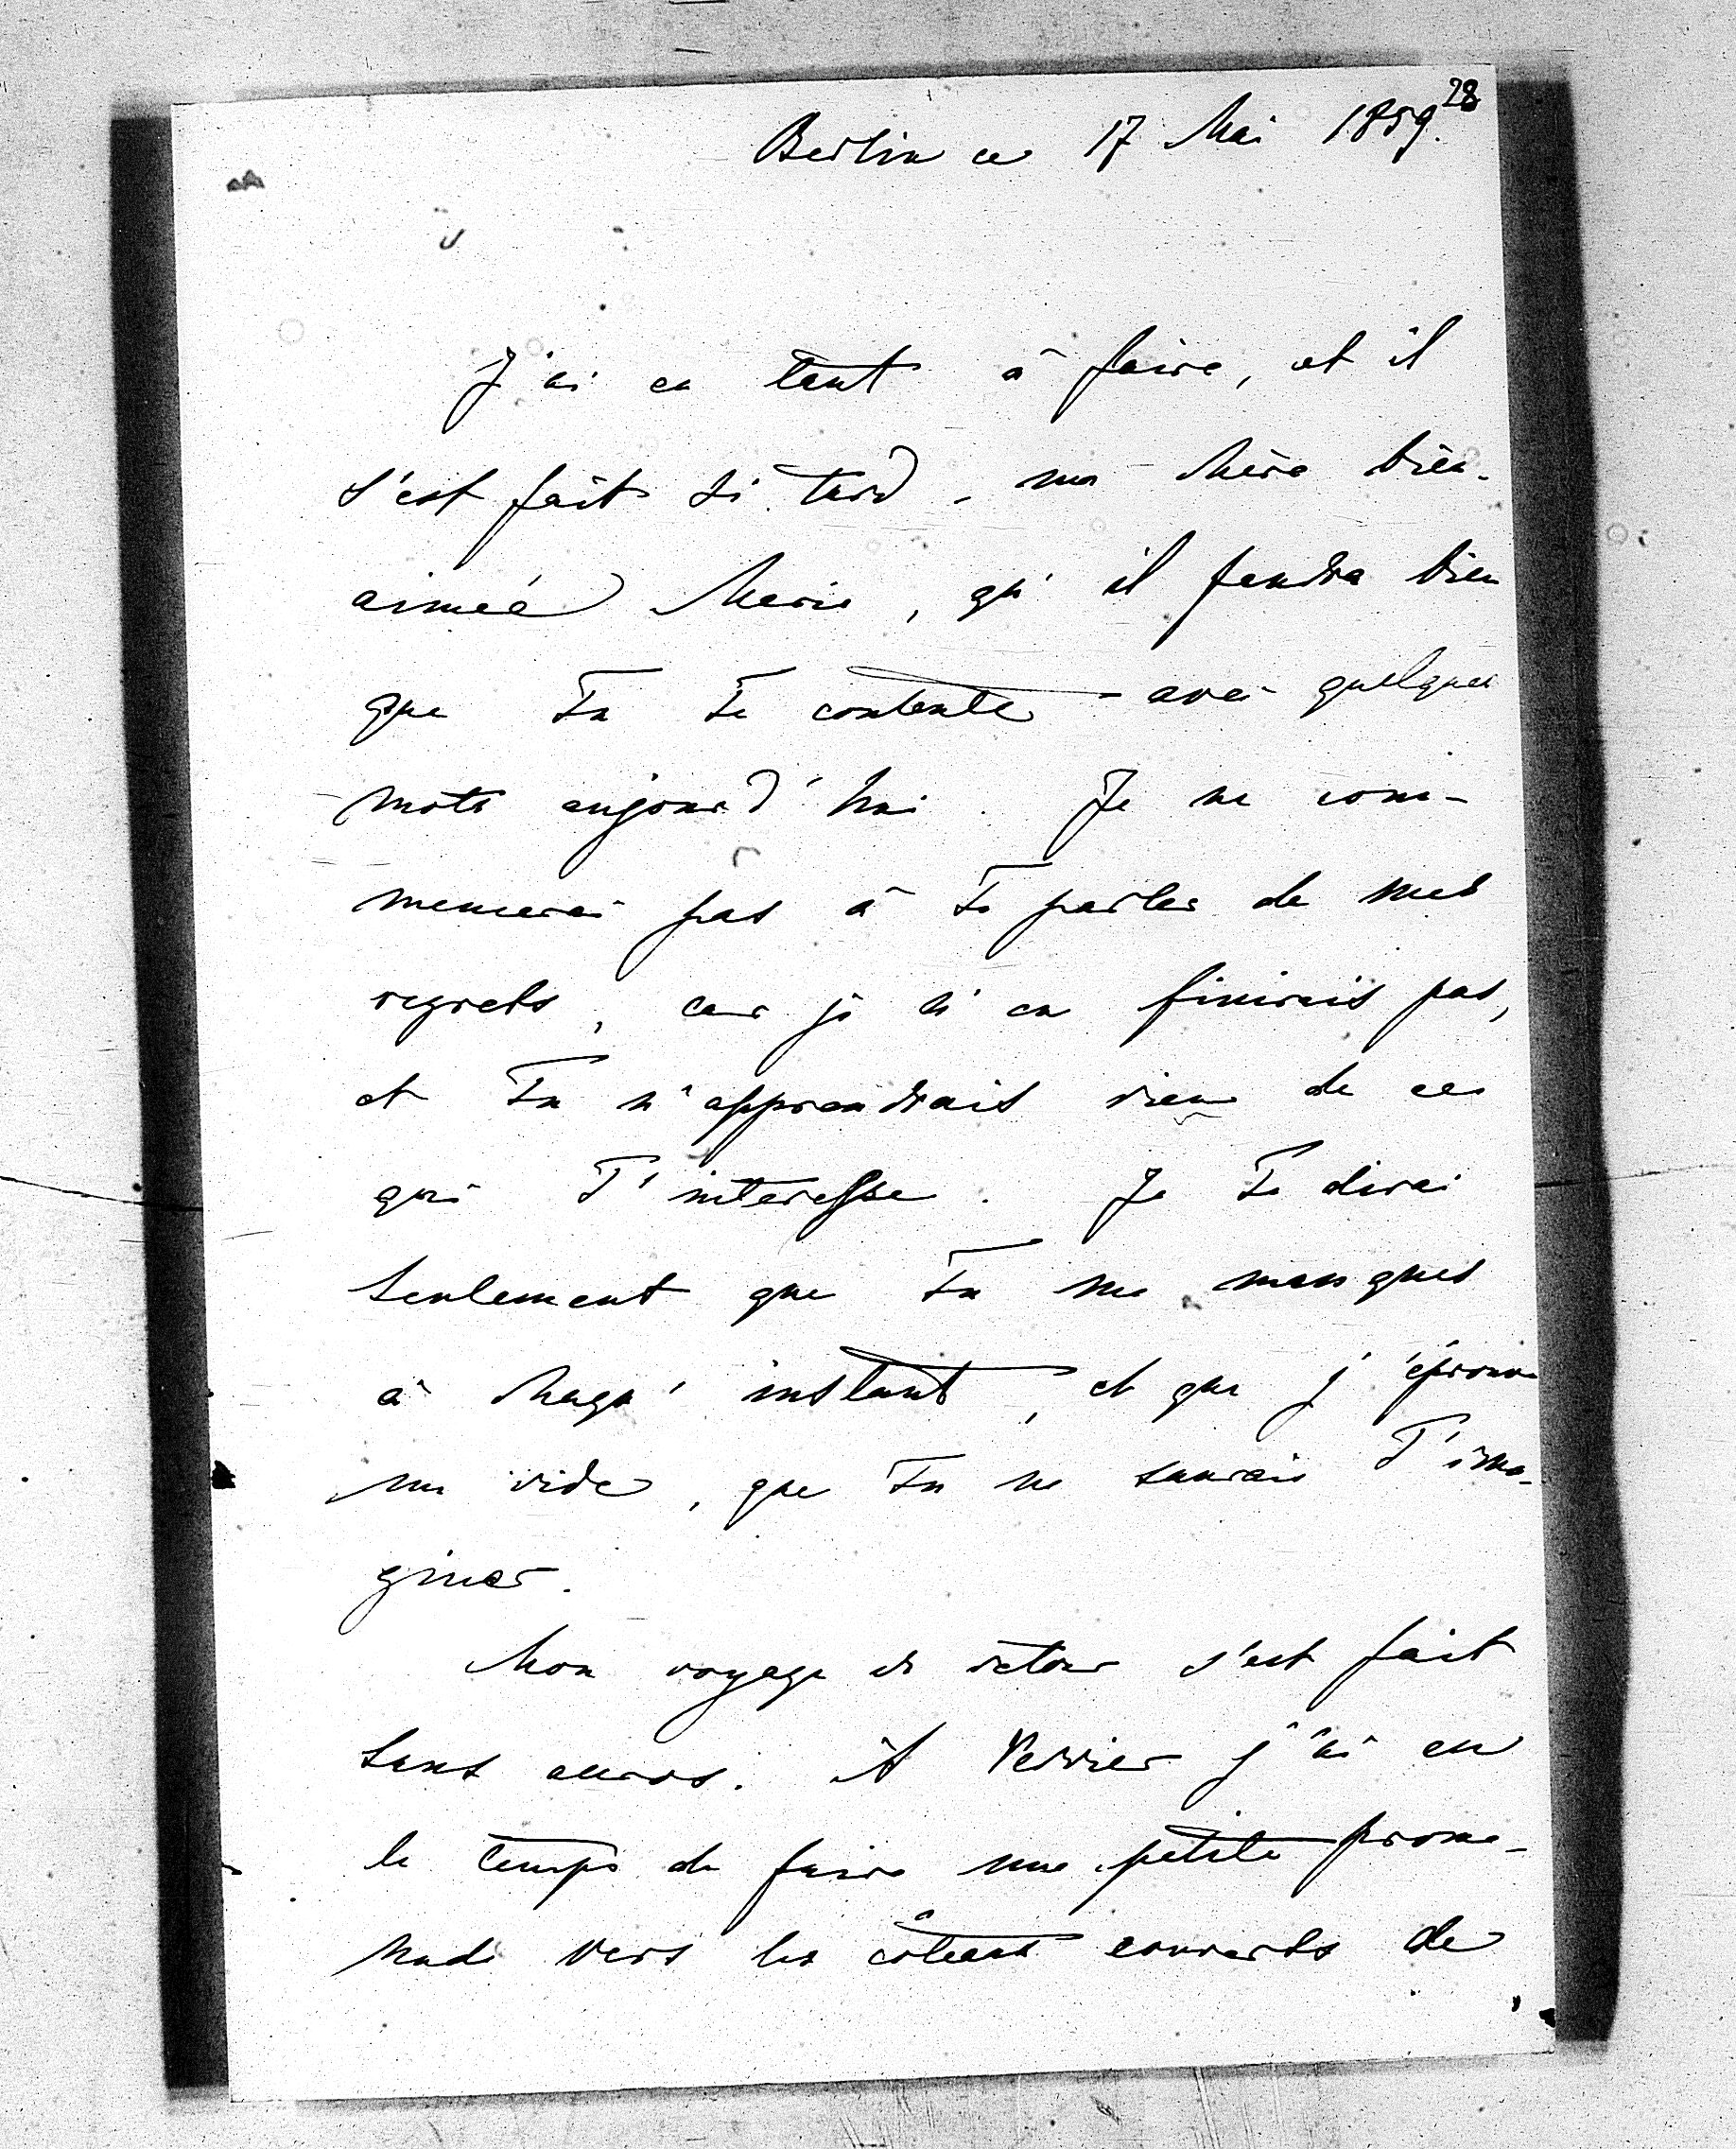 28
Berlin ce 17 Mai 1859.
J'ai eu tant à faire, et il
s'est fait si tard, ma chère bien-
aimée Marie, qu'il faudra bien
que Tu Te contente avec quelques
mots aujourd'hui. Je ne com-
mencerai pas à Te parler de mes
regrets, car je n'en finirais pas,
et Tu n'apprendrais rien de ce
qui T'interesse. Je Te dirai
seulement que Tu me manques
à chaqu' instant, et que j'éprouve
un vide, que Tu ne saurais T'ima-
giner.
Mon voyage de retour s'est fait
sans accros. A Vervier j'ai eu
le temps de faire une petite prome-
nade vers les côteaux couverts de